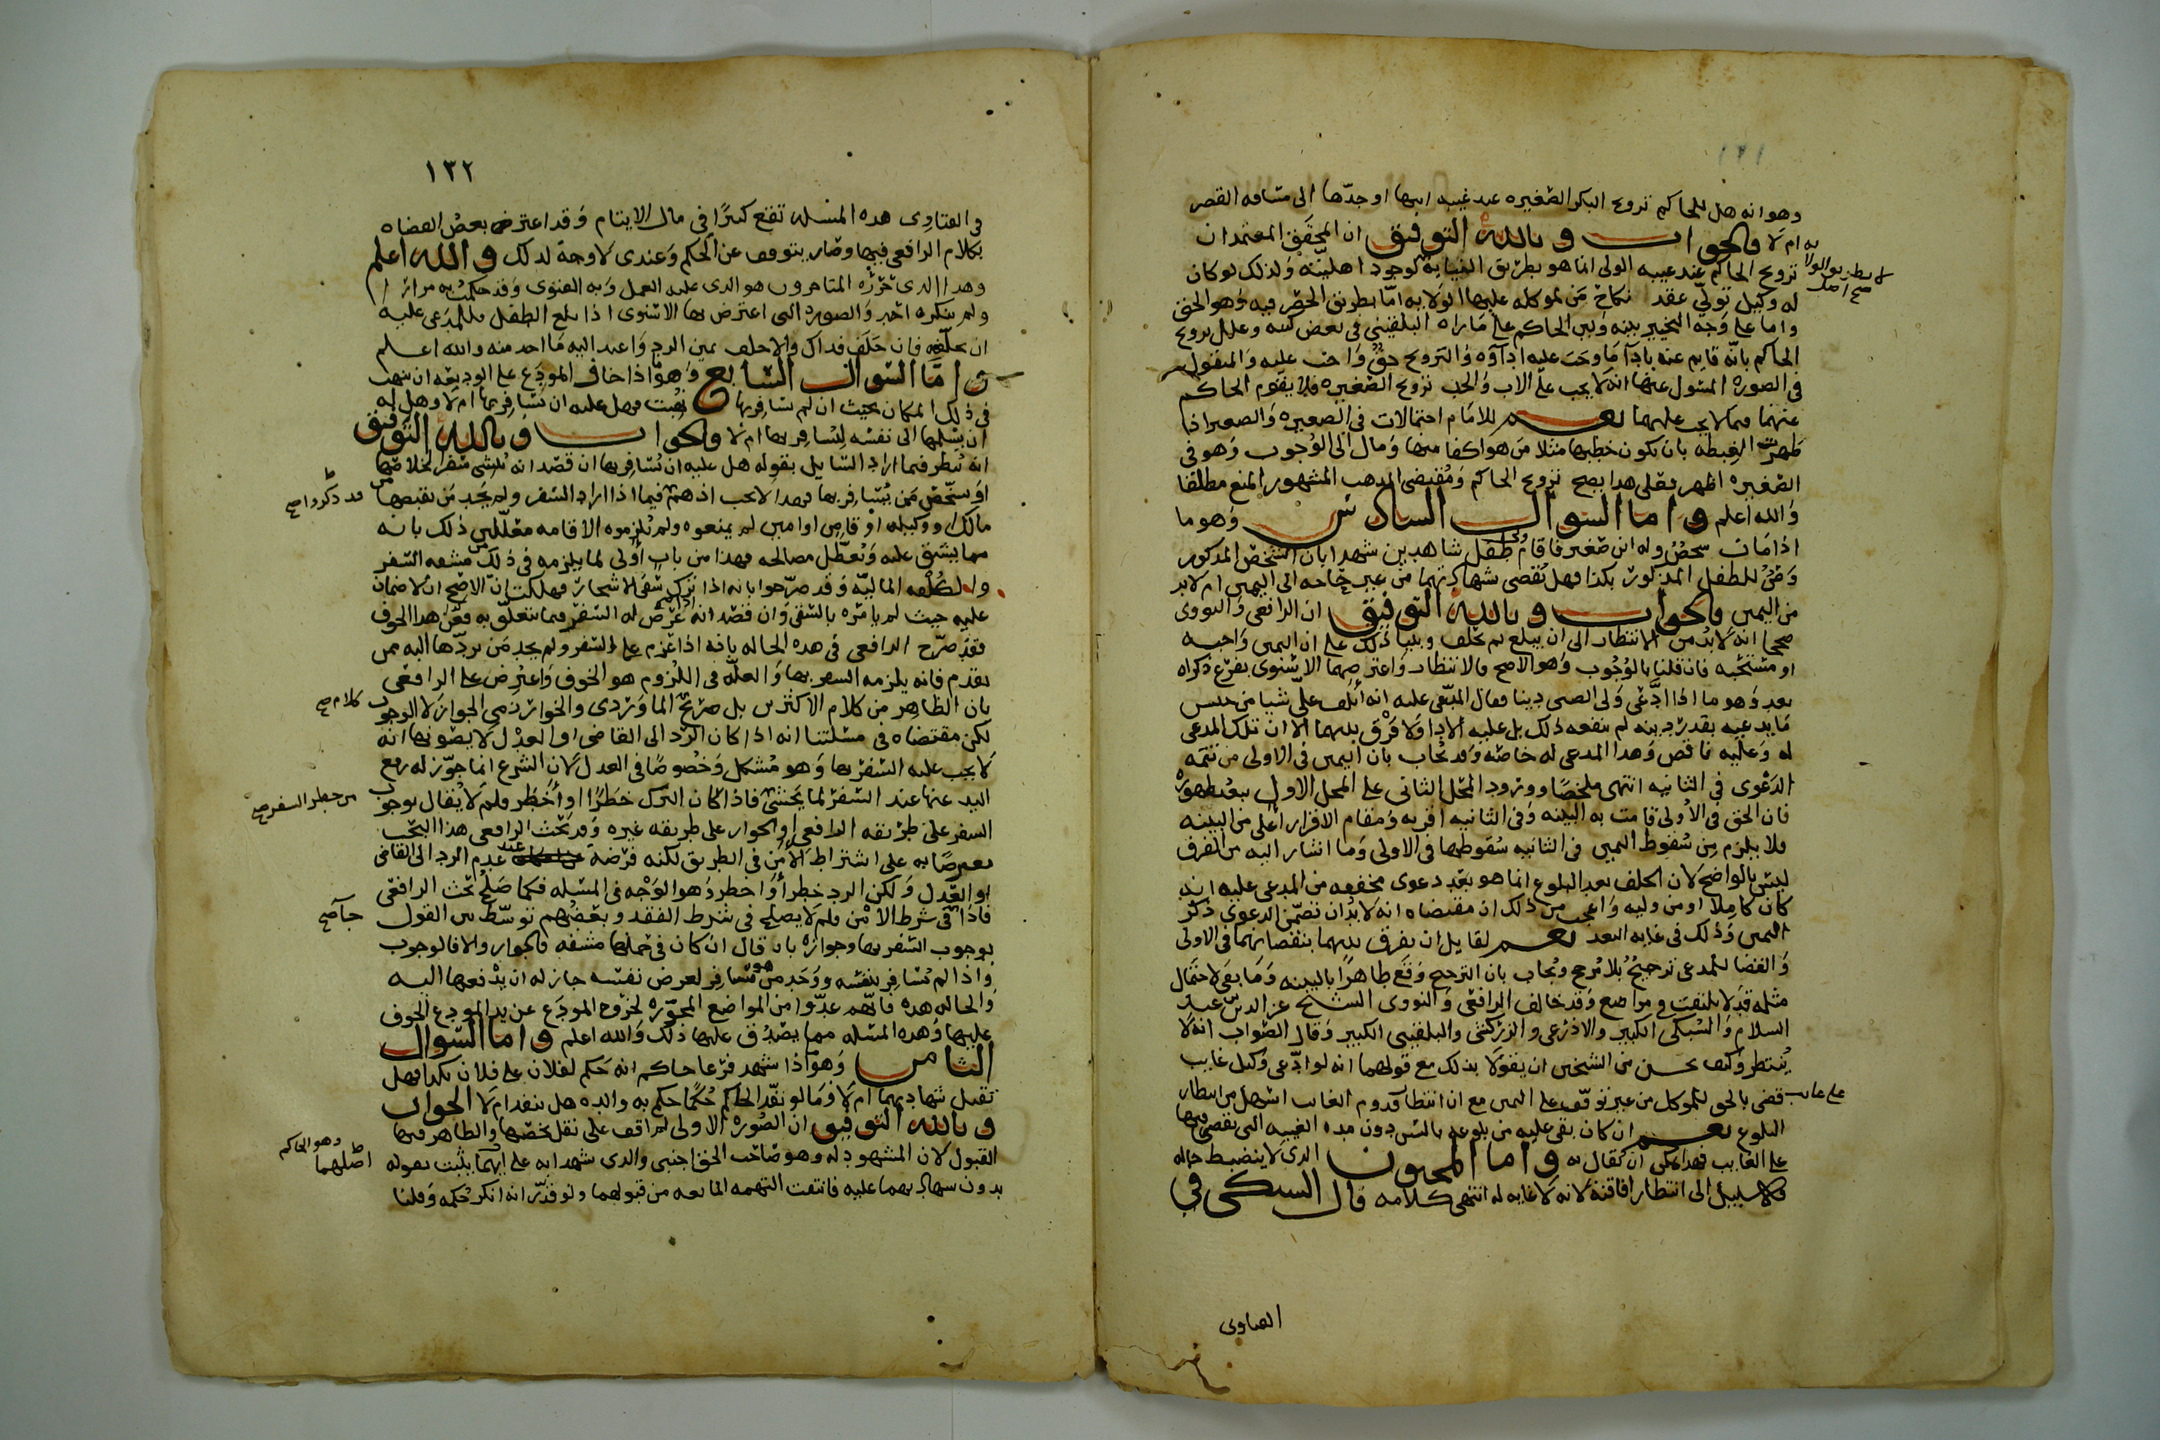 ١٣١
وهو انه هل للحاكم تزويج البكر الصغيره عند غيبه ابيها او جدّها الى مسافه القصر
ام لا فالجواب وبالله التوفيق ان المحقق المعتمد ان
تزويج الحاكم عند غيبه الولى انما هو بطريق النيابة لوجود اهليته ولذلك لو كان
له وكيل تولّى عقد نكاح من لموكله عليها الولايه امّا بطريق الحصر فيه وهو الحق
واما على وجه التخيير بينه وبين الحاكم على ما رآه البلقينى فى بعض كتبه وعلل تزويج
الحاكم بانّه قايم عنه بادآ ما وجب عليه اداؤه والتزويج حق واجب عليه والمنقول
فى الصوره المسول عنها انه لا يجب على الاب والجد تزويج الصغيره فلا يقوم الحاكم
عنهما فيما لا يجب عليهما نعم للامام احتمالات فى الصغيره والصغير اذا
ظهرت الغبطه بان يكون خطبها مثلا من هو اكفا منها ومال الى الوجوب وهو فى
الصغيره اظهر فعلى هذا يصح تزويج الحاكم ومقتضى المذهب المشهور المنع مطلقا
والله اعلم واما السوال السادس وهو ما
اذا مات شخص وله ابن صغير فاقام ولى طفل شاهدين شهدا بان الشخص المذكور
وصى للطفل المذكور بكذا فهل تقضى شهادتهما من غير حاجه الى اليمين ام لا بد
من اليمين فالجواب وبالله التوفيق ان الرافعى والنووى
صححا انه لا بد من الانتظار الى ان يبلغ ثم يحلف وبنيا ذلك على ان اليمين واجبه
او مستحبه فان قلنا بالوجوب وهو الاصح فالانتظار واعترضهما الاسنوى بفرع ذكراه
بعد وهو ما اذا ادّعى ولى الصبى دينا فقال المدّعى عليه انه اتلف علىّ شيا من جنس
ما يدعيه بقدر دينه لم ينفعه ذلك بل عليه الادا ولا فرق بينهما الا ان تلك المدعى
له وعليه ناقص وهذا المدعى له خاصّه وقد يجاب بان اليمين فى الاولى من تتمه
الدعوى فى الثانيه انتهى ملخصا وورود المحل الثانى على المحل الاول
فان الحق فى الاولى قامت به البينه وفى الثانيه اقر به ومقام الاقرار اعلى من البينه
فلا يلزم من سقوط اليمين فى الثانيه سقوطها فى الاولى وما اشار اليه من الفرق
ليس بالواضح لان الحلف بعد البلوغ انما هو بعد دعوى من المدعى عليه
كان كاملا او من وليه واعجب من ذلك ان مقتضاه انه لا بد ان تضمّن الدعوى ذكر
اليمين وذلك فى غايه البعد نعم لقايل ان يفرق بينهما بنقصانهما فى الاولى
والقضا للمدعى ترجيحٌ بلا مرجح ويجاب بان الترجيح وقع ظاهرًا بالبينه وما بقى لاحتمال
مثله قد لا يلتفت فى مواضع وقد خالف الرافعى والنووى الشيخ عز الدين بن عبد
السلام والسبكى الكبير والاذرعى والزركشى والبلقينى الكبير وقال الصواب انه لا
يُنتظر وكيف يحسن من الشيخين ان يقولا بذلك مع قولهما انه لو ادّعى وكيل غايب
على غايب قضى بالحق للموكل من غير توقّف على اليمين مع ان انتظار قدوم الغايب اسهل من انتظار
البلوغ نعم ان كان بقى عليه من بلوغه بالسن دون مده الغيبه التى يقضى فيها
على الغايب فهذا يمكن ان يقال به واما المجنون الذى لا ينضبط حاله
فلا سبيل الى انتظار افاقته لانه لا غايه له انتهى كلامه قال السبكى فى
الفتاوى
١٣٢
فى الفتاوى هذه المسله تقع كثيرًا فى مال الايتام وقد اعترض بعض القضاه
بكلام الرافعى فيها وصار يتوقف عن الحكم وعندى لا وجه لذلك والله اعلم
وهذا الذى حرّره المتاخرون هو الذى عليه العمل وبه الفتوى وقد حكمت به مرارًا
ولم ينكره احد والصوره التى اعترض بها الاسنوى اذا بلغ الطفل فللمدعى عليه
ان يحلّفه فان حلف فذاك والا حلف يمين الرد واعيد اليه ما اخذ منه والله اعلم
واما السوال السابع وهو اذا خاف المودَع على الوديعه ان تنهب
فى ذلك المكان بحيث ان لم يسافر بها نُهبت فهل عليه ان يسافر بها ام لا وهل له
ان يسلمها الى نفسه ليسافر بها ام لا فالجواب وبالله التوفيق
انه يُنظر فيما اراد السايل بقوله هل عليه ان يسافر بها ان قصد انه يُنشى سفرًا لخلاصها
او سخّر من يسافر بها فهذا لا يجب اذ هم فيما اذا اراد السفر ولم يجد من يقبضها من
مالك او وكيله او قاضٍ او امين لم يمنعوه ولم يُلزموه الاقامه معلّلين ذلك بانه
مما يشق عليه ويعطّل مصالحه فهذا من باب اولى لما يلزمه فى ذلك من مشقه السفر
والكلفه الماليّه وقد صرّحوا بانه اذا ترك سقى الاشجار فهلكت ان الاصح ان لا ضمان
عليه حيث لم يامره بالسقى وان قصد انه اذا عرض له السفر فيما يتعلّق به فعن هذا الخوف
فقد صرّح الرافعى فى هذه الحاله بانه اذا عزم على السفر ولم يجد من يردّها اليه ممن
تقدم فانه يلزمه السفر بها والعلّه فى اللزوم هو الخوف واعترض على الرافعى
بان الظاهر من كلام الاكثرين بل صريح كلام الماوردى والخوارزمى الجواز لا الوجوب
لكن مقتضاه فى مسئلتنا انه اذا كان الرد الى القاضى او العدل لا يصونها انه
لا يجب عليه السفر بها وهو مشكل وخصوصًا فى العدل لان الشرع انما جوّز له رفع
اليد عنها عند السفر لما يخشى فاذا كان الترك خطرًا او اخطر من خطر السفر فلم لا يُقال بوجوب
السفر على طريقه الرافعى او الجواز على طريقه غيره وقد بحث الرافعى هذا البحث
معترضا به على اشتراط الامن فى الطريق لكنه فرضه عند عدم الرد الى القاضى
او العدل ولكن الرد خطر او اخطر وهو الوجه فى المسله فكما صلح بحث الرافعى
فاذا فى شرط الامن فلم لا يصلح فى شرط الفقد وبعضهم توسّط بين القول
بوجوب السفر بها وجوازه بان قال ان كان فى حملها مشقه فالجواز والا فالوجوب
واذا لم يسافر بنفسه ووجد من هو مسافر لعرض نفسه جاز له ان يدفعها اليه
والحاله هذه فانهم عدّوا من المواضع المجوّزه لخروج المودَع عن يد المودع الخوف
عليها وهذه المسله مما يصدق عليها ذلك والله اعلم واما السوال
الثامن وهو اذا شهد فرعا حاكم انه حكم لفلان على فلان بكذا فهل
تقبل شهادتهما ام لا وما لو نفّذ الحاكم حُكمًا حكم به والده هل ينفذ ام لا الجواب
وبالله التوفيق ان الصوره الاولى لم اقف على نقل يخصّها والظاهر فيها
القبول لان المشهود له وهو صاحب الحق اجنبى والذى شهدا به على ابيهما يثبت بقوله
بدون شهادتهما عليه فانتفت التهمه المانعه من قبولهما ولو قدّر انه انكر حكمه وقلنا
قد ذكروا صح
كلام صح
من خطر السفر صح
اصلهما وهو الحاكم